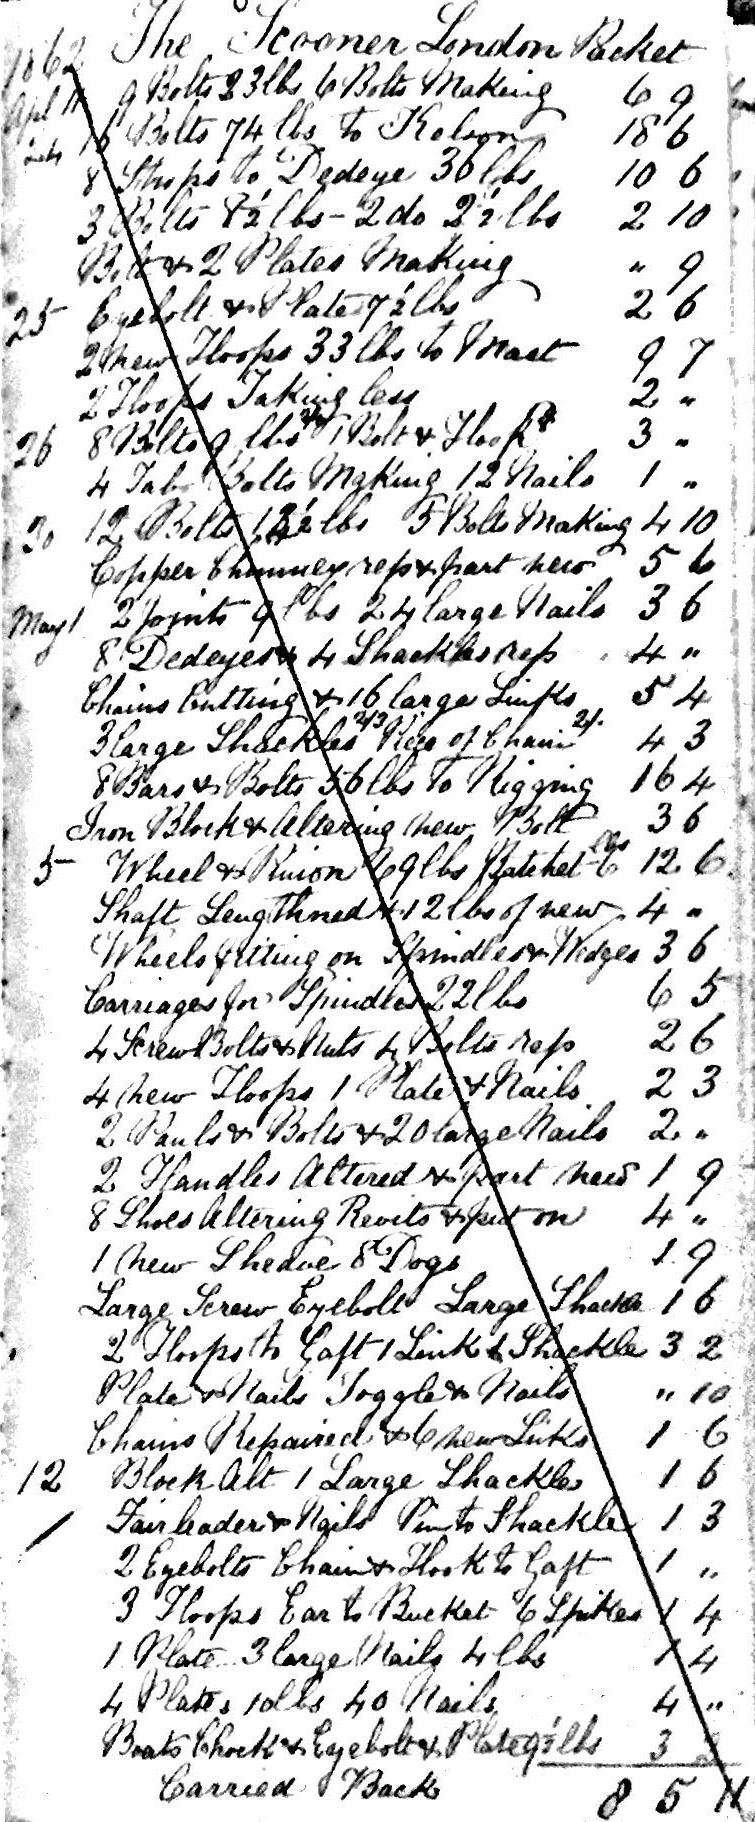 The Scooner London Packet
1862
Apl 11 9 Bolts 23lbs 6 Bolts Making 6 9
16 Bolts 74 lbs to Kelson 18 6
8 Strops to Dedeye 36 lbs 10 6
3 Bolts 8½ lbs - 2 do 2½ lbs 2 10
Bolt & 2 Plates Making " 9
25 Eyebolt & Plate 7½ lbs 2 6
2 new Hoops 33 lbs to Mast 9 7
2 Hoops Taking less 2 "
26 8 Bolts 9 lbs 1 Bolt & Hook 3 "
4 Bolts Making 12 Nails 1 "
30 12 Bolts lbs 5 Bolts Making 4 10
Copper Chimney rep & part new 5 6
May 1 2 Joints 9 lbs 24 large Nails 3 6
8 Dedeyes & 4 Shackles rep 4 "
Chains Cutting & 16 large Links 5 4
3 large Shackles 2/3 Piece of Chain 2/. 4 3
8 Bars & Bolts 56 lbs to Rigging 16 4
Iron Block & Altering new Bolt 3 6
5 Wheel & Pinion 69 lbs Ratchet 6 lbs 12 6
Shaft Lengthned & 12 lbs of new 4 "
Wheels fitting on Spindles & Wedges 3 6
Carriages for Spindles 22 lbs 6 5
4 Screw Bolts & Nuts 4 Bolts rep 2 6
4 new Hoops 1 Plate & Nails 2 3
2 Pauls & Bolts & 20 large Nails 2 "
2 Handles Altered & part new 1 9
8 Shoes Altering Revits & put on 4 "
1 new Sheave 8 Dogs 1 9
Large Screw Eyebolt Large Shackle 1 6
2 Hoops to Gaft 1 Link & Shackle 3 2
Plate & Nails Toggle & Nails " 10
Chains Repaired & 6 new Links 1 6
12 Block Alt 1 Large Shackle 1 6
Fairleader & Nails Pin to Shackle 1 3
2 Eyebolts Chain & Hook to Gaft 1 "
3 Hoops Ear to Bucket 6 Spikes 1 4
1 Plate 3 large Nails 4 lbs 1 4
4 Plates 10 lbs 40 Nails 4 "
Boats Chock & Eyebolt & Plate 9½ lbs 3
Carried Back 8 5 11